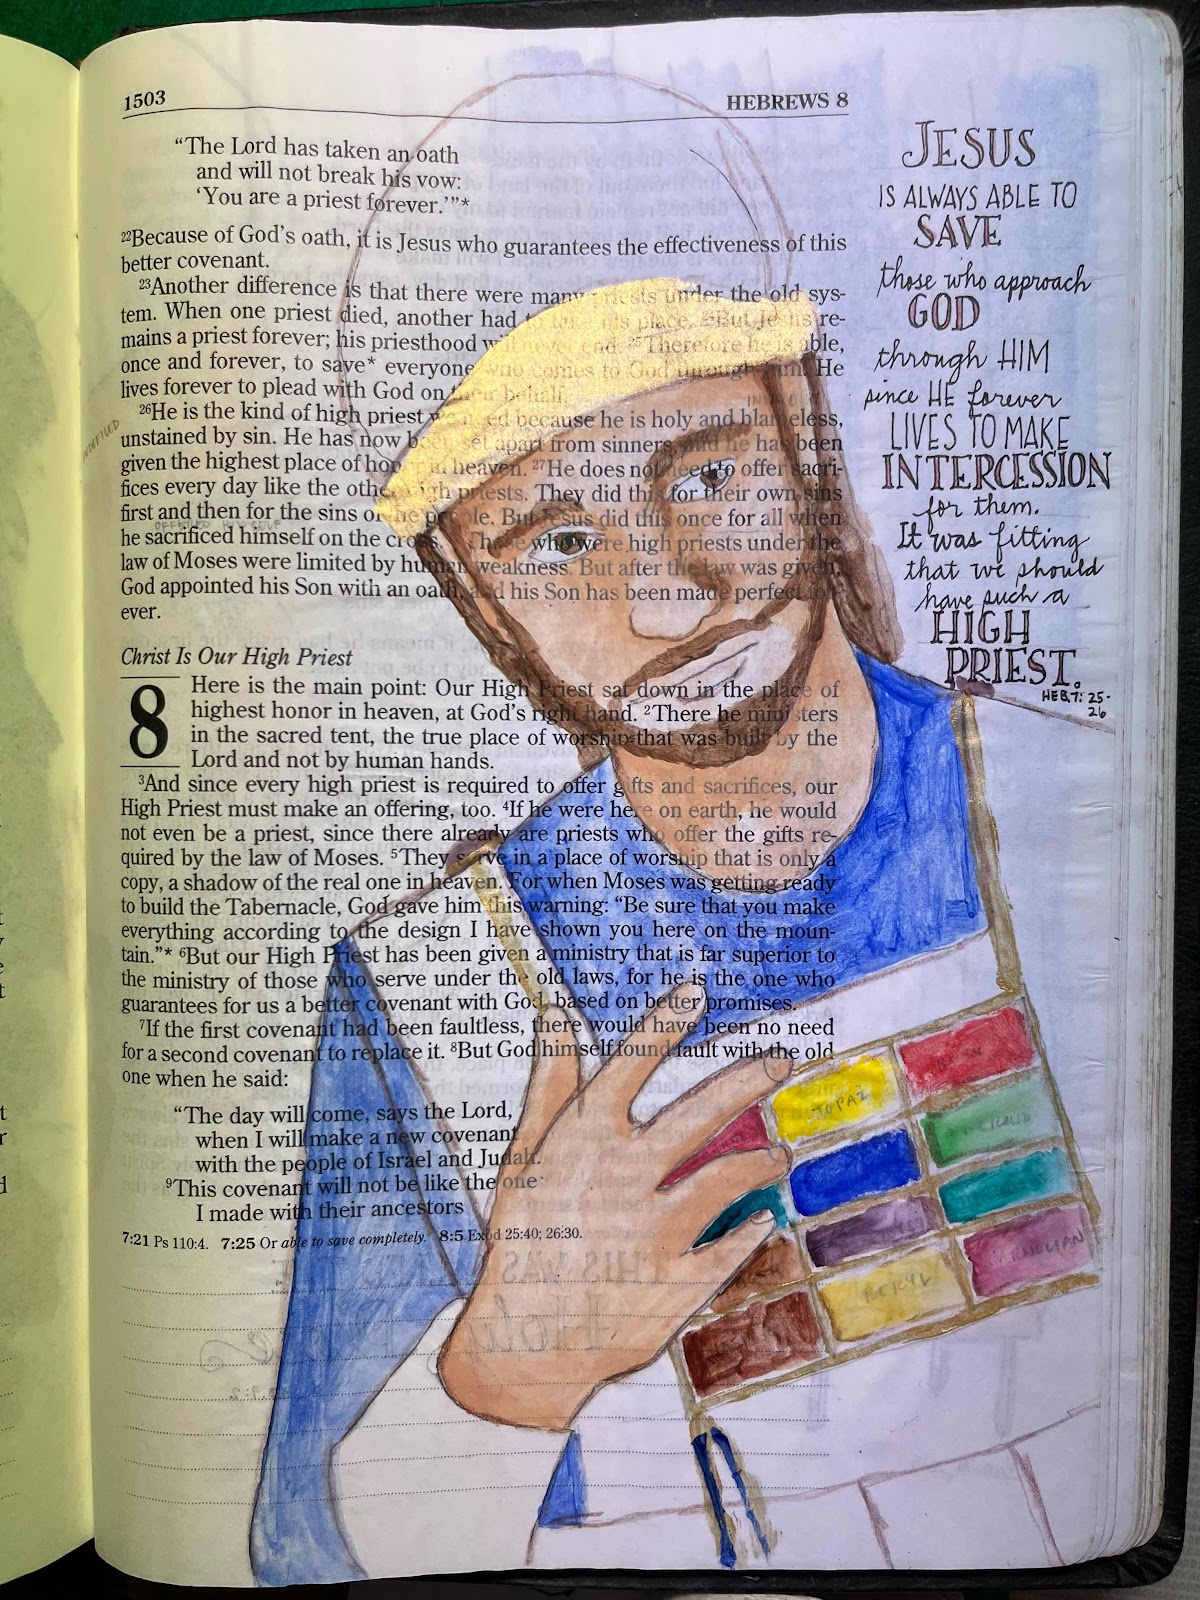 1503
HEBREWS 8
“The Lord has taken an oath
and will not break his vow:
‘You are a priest forever.’”*
22Because of God’s oath, it is Jesus who guarantees the effectiveness of this
better covenant.
23Another difference is that there were many priests under the old sys-
tem. When one priest died, another had to take his place. 24But Jesus re-
mains a priest forever; his priesthood will never end. 25Therefore he is able,
once and forever, to save* everyone who comes to God through him. He
lives forever to plead with God on their behalf.
26He is the kind of high priest we need because he is holy and blameless,
unstained by sin. He has now been set apart from sinners, and he has been
given the highest place of honor in heaven. 27He does not need to offer sacri-
fices every day like the other high priests. They did this for their own sins
first and then for the sins of the people. But Jesus did this once for all when
he sacrificed himself on the cross. 28Those who were high priests under the
law of Moses were limited by human weakness. But after the law was given,
God appointed his Son with an oath, and his Son has been made perfect for-
ever.
UNDEFILED
OFFERED HIMSELF
Christ Is Our High Priest
8 Here is the main point: Our High Priest sat down in the place of
highest honor in heaven, at God’s right hand. 2There he ministers
in the sacred tent, the true place of worship that was built by the
Lord and not by human hands.
3And since every high priest is required to offer gifts and sacrifices, our
High Priest must make an offering, too. 4If he were here on earth, he would
not even be a priest, since there already are priests who offer the gifts re-
quired by the law of Moses. 5They serve in a place of worship that is only a
copy, a shadow of the real one in heaven. For when Moses was getting ready
to build the Tabernacle, God gave him this warning: “Be sure that you make
everything according to the design I have shown you here on the moun-
tain.”* 6But our High Priest has been given a ministry that is far superior to
the ministry of those who serve under the old laws, for he is the one who
guarantees for us a better covenant with God, based on better promises.
7If the first covenant had been faultless, there would have been no need
for a second covenant to replace it. 8But God himself found fault with the old
one when he said:
“The day will come, says the Lord,
when I will make a new covenant
with the people of Israel and Judah.
9This covenant will not be like the one
I made with their ancestors
7:21 Ps 110:4. 7:25 Or able to save completely. 8:5 Exod 25:40; 26:30.
JESUS
IS ALWAYS ABLE TO
SAVE
those who approach
GOD
through HIM
since HE forever
LIVES TO MAKE
INTERCESSION
for them.
It was fitting
that we should
have such a
HIGH
PRIEST.
HEB. 7:25-
26
TOPAZ
BERYL